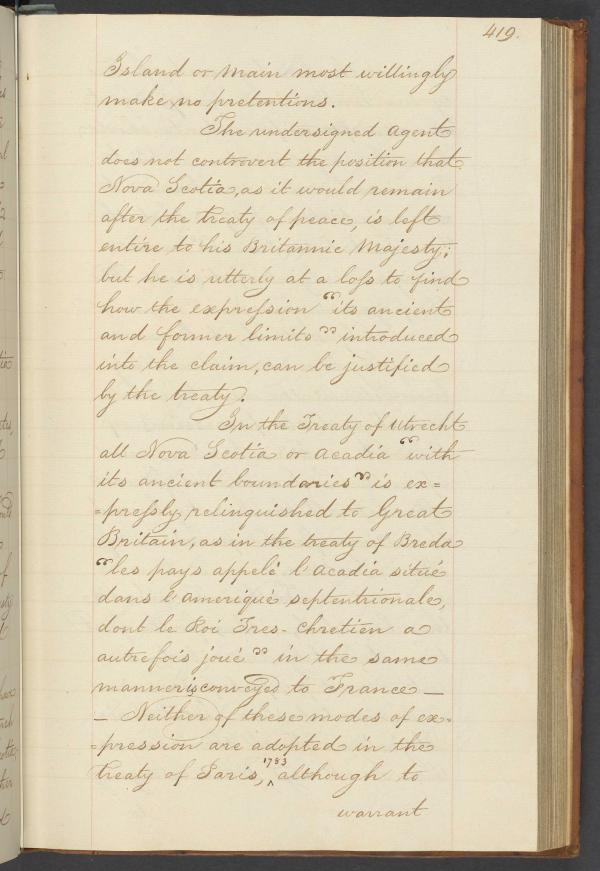 419.
Island or Main most willingly
make no pretentions.
The undersigned Agent
does not controvert the position that
Nova Scotia, as it would remain
after the treaty of peace, is left
entire to his Britannic Majesty;
but he is utterly at a loss to find
how the expression "its ancient
and former limits" introduced
into the claim, can be justified
by the treaty.
In the Treaty of Utrecht
all Nova Scotia or Acadia "with
its ancient boundaries" is ex=
=pressly relinquished to Great
Britain, as in the treaty of Breda
"les pays appelé l'Acadia situé
dans l'Ameriqué septentrionale,
dont le Roi Tres-Chretien a
autrefois joué" in the same
manner is conveyed to France —
— Neither of these modes of ex=
=pression are adopted in the
treaty of Paris, 1783 although to
warrant